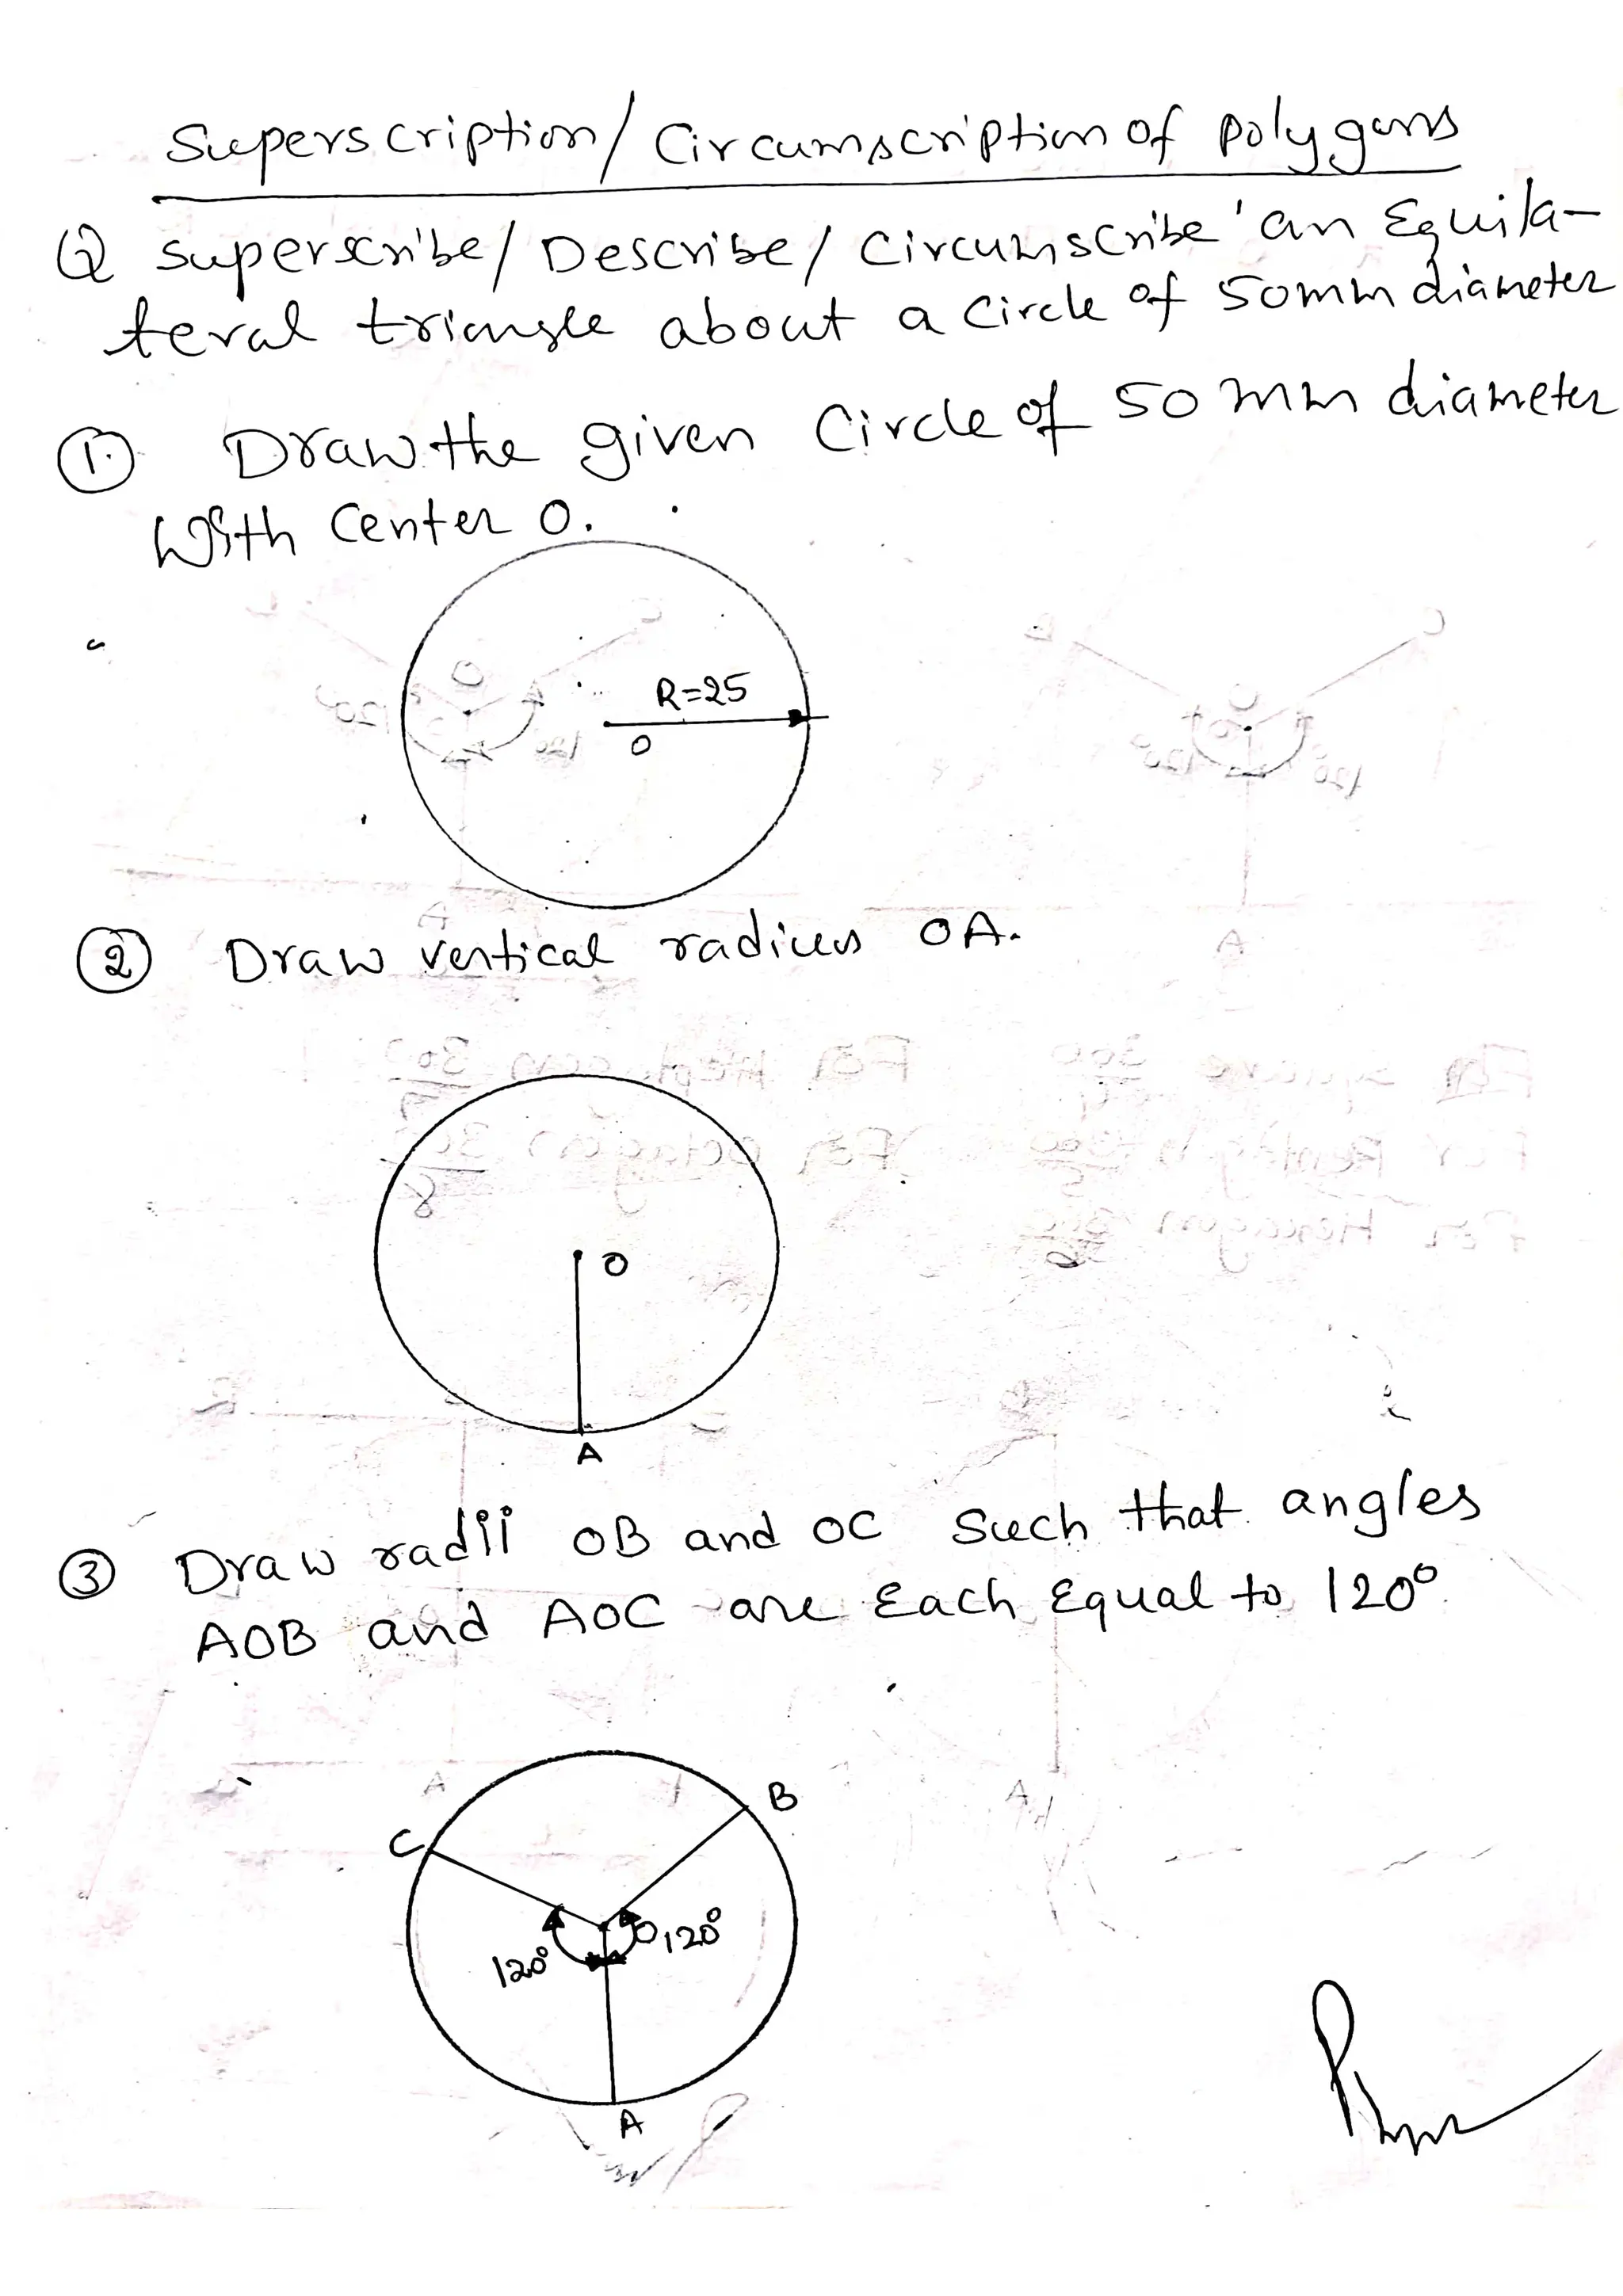 Superscription/Circumscription of Polygons
Q Superscribe/Describe/Circumscribe an Equila-
teral triangle about a Circle of 50mm diameter
1. Draw the given Circle of 50 mm diameter
With Center O.
R=25
O
2 Draw vertical radius OA.
O
A
3 Draw radii OB and OC Such that angles
AOB and AOC are Each Equal to 120°.
B
C
O
120°
120°
A